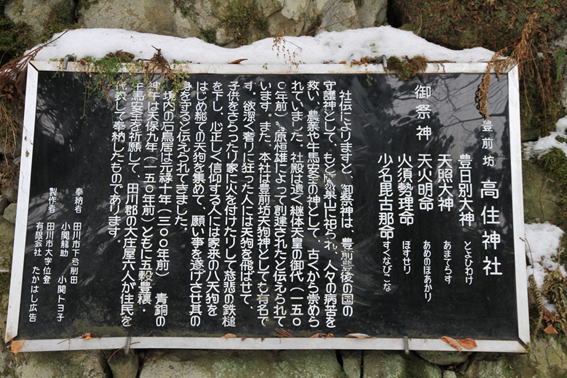 豊前坊 高住神社
御祭神
豊日別大神 とよひわけ
天照大神 あまてらす
天火明命 あめのほあかり
火須勢理命 ほすせり
少名毘古那命 すくなびこな
社伝によりますと、御祭神は、豊前豊後の国の
守護神として、もと鷹巣山に祀られ、人々の病苦を
救い、農業や牛馬安全の神として、古くから崇めら
れていました。社殿は遠く継体天皇の御代(一五〇
〇年前)、藤原恒雄によって創建されたと伝えられて
います。また、本社は豊前坊天狗神としても有名で
す。欲深く、奢りに狂った人には天狗を飛ばせて、
子供をさらったり家に火を付けたりして慈悲の鉄槌
を下し、心正しく信仰する人には家来の八天狗を
はじめ総ての天狗を集めて、願い事を遂げさせ其の
身を守ると伝えられてきました。
境内の石鳥居は元禄十年(三〇〇年前) 青銅の
は天保九年(一五〇年前)ともに五穀豊穣・
牛馬安全を祈願して、田川郡の大庄屋六人が住民を
代表して奉納したものであります。
奉納者 田川市下弓削田
小関観助 小関トヨ子
製作者 田川市大字位登
有限会社 たかはし広告